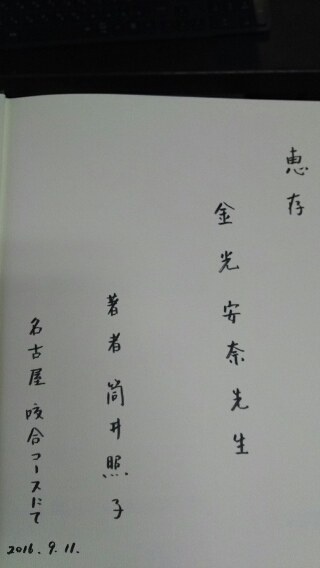 恵存
金光安奈先生
著者 筒井照子
名古屋 咬合コースにて
2016.9.11.